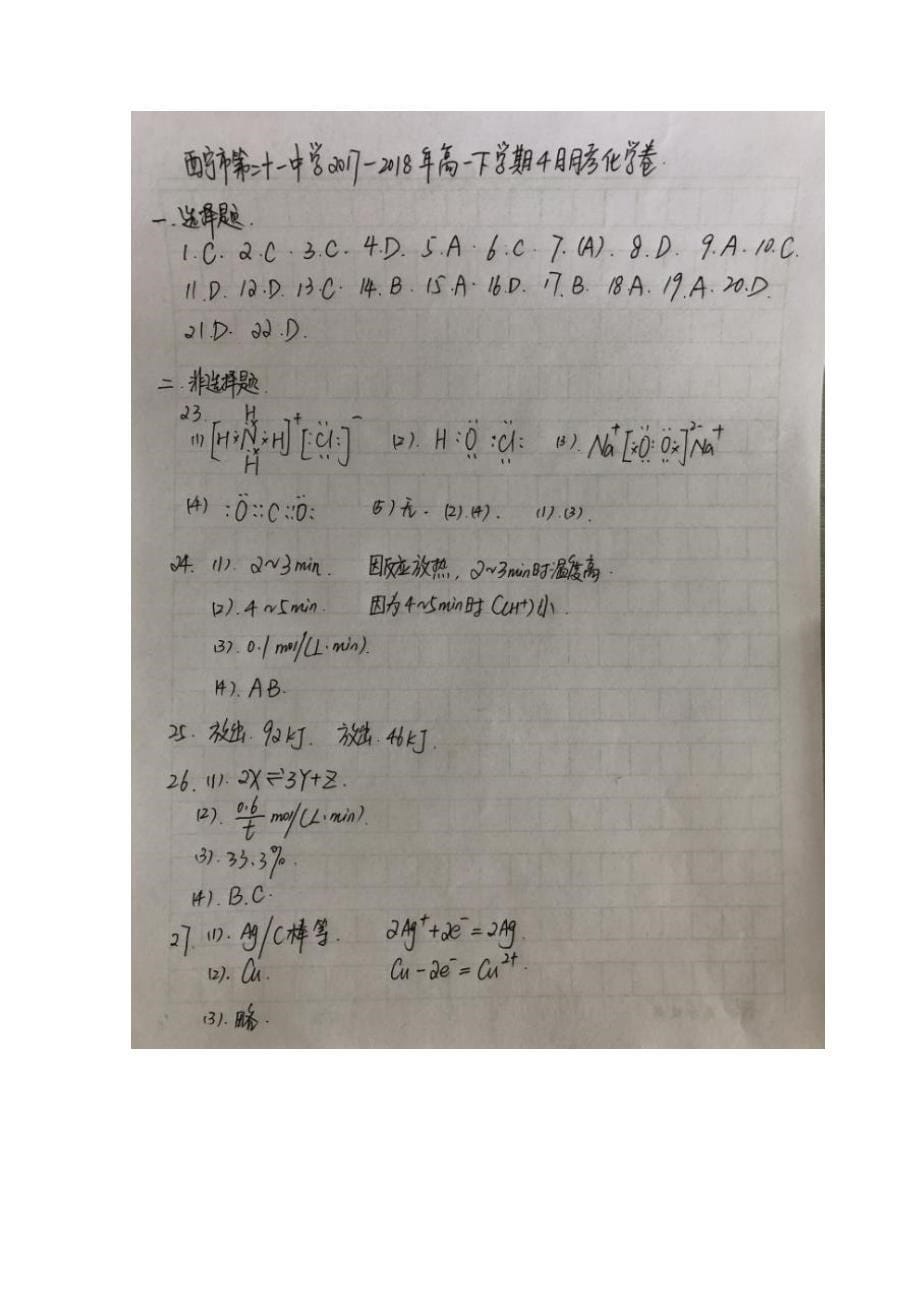 西宁市第二十一中学2017-2018年高一下学期4月月考化学卷.
一.选择题.
1.C. 2.C. 3.C. 4.D. 5.A. 6.C. 7.(A). 8.D. 9.A. 10.C.
11.D. 12.D. 13.C. 14.B. 15.A. 16.D. 17.B. 18A. 19.A. 20.D.
21.D. 22.D.
二.非选择题.
23.
(1) [H:N:H]⁺[:Cl:]⁻ (2). H:O:Cl: (3). Na⁺[:O:O:]²⁻Na⁺
H
H
(4) :O::C::O: (5)无. (2).(4). (1).(3).
24. (1). 2~3min. 因反应放热, 2~3min时温度高.
(2). 4~5min. 因为4~5min时 C(H⁺)小.
(3). 0.1 mol/(L·min).
(4). AB.
25. 放出. 92kJ. 放出. 46kJ.
26. (1). 2X⇌3Y+Z.
(2). 0.6/t mol/(L·min).
(3). 33.3%.
(4). B.C.
27. (1). Ag/C棒等. 2Ag⁺+2e⁻=2Ag.
(2). Cu. Cu-2e⁻=Cu²⁺.
(3). 略.